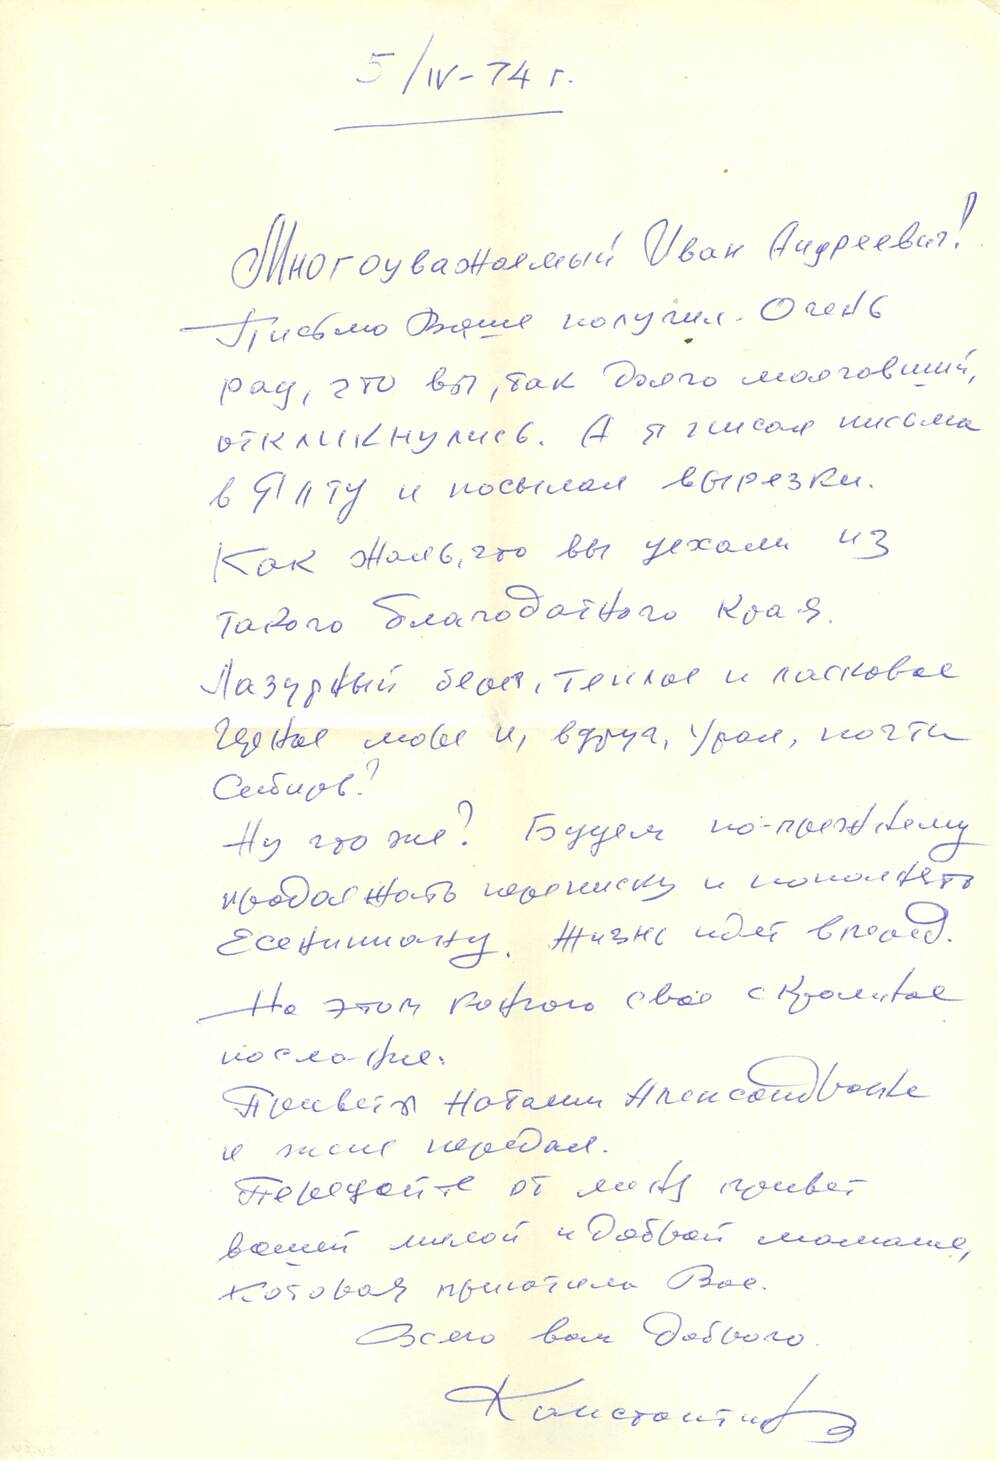 5/IV-74 г.
Многоуважаемый Иван Андреевич!
Письмо Ваше получил. Очень
рад, что вы, так долго молчавший,
откликнулись. А я писал письма
в Ялту и посылал вырезки.
Как жаль, что вы уехали из
такого благодатного края.
Лазурный берег, теплое и ласковое
Черное море и, вдруг, Урал, почти
Сибирь?
Ну что же? Будем по-прежнему
продолжать переписку и пополнять
Есениниану. Жизнь идет вперед.
На этом кончаю свое скромное
послание.
Приветы Наталии Александровне
и жене передал.
Передайте от меня привет
вашей милой и доброй мамаше,
которая приютила Вас.
Всего вам доброго.
Константинов